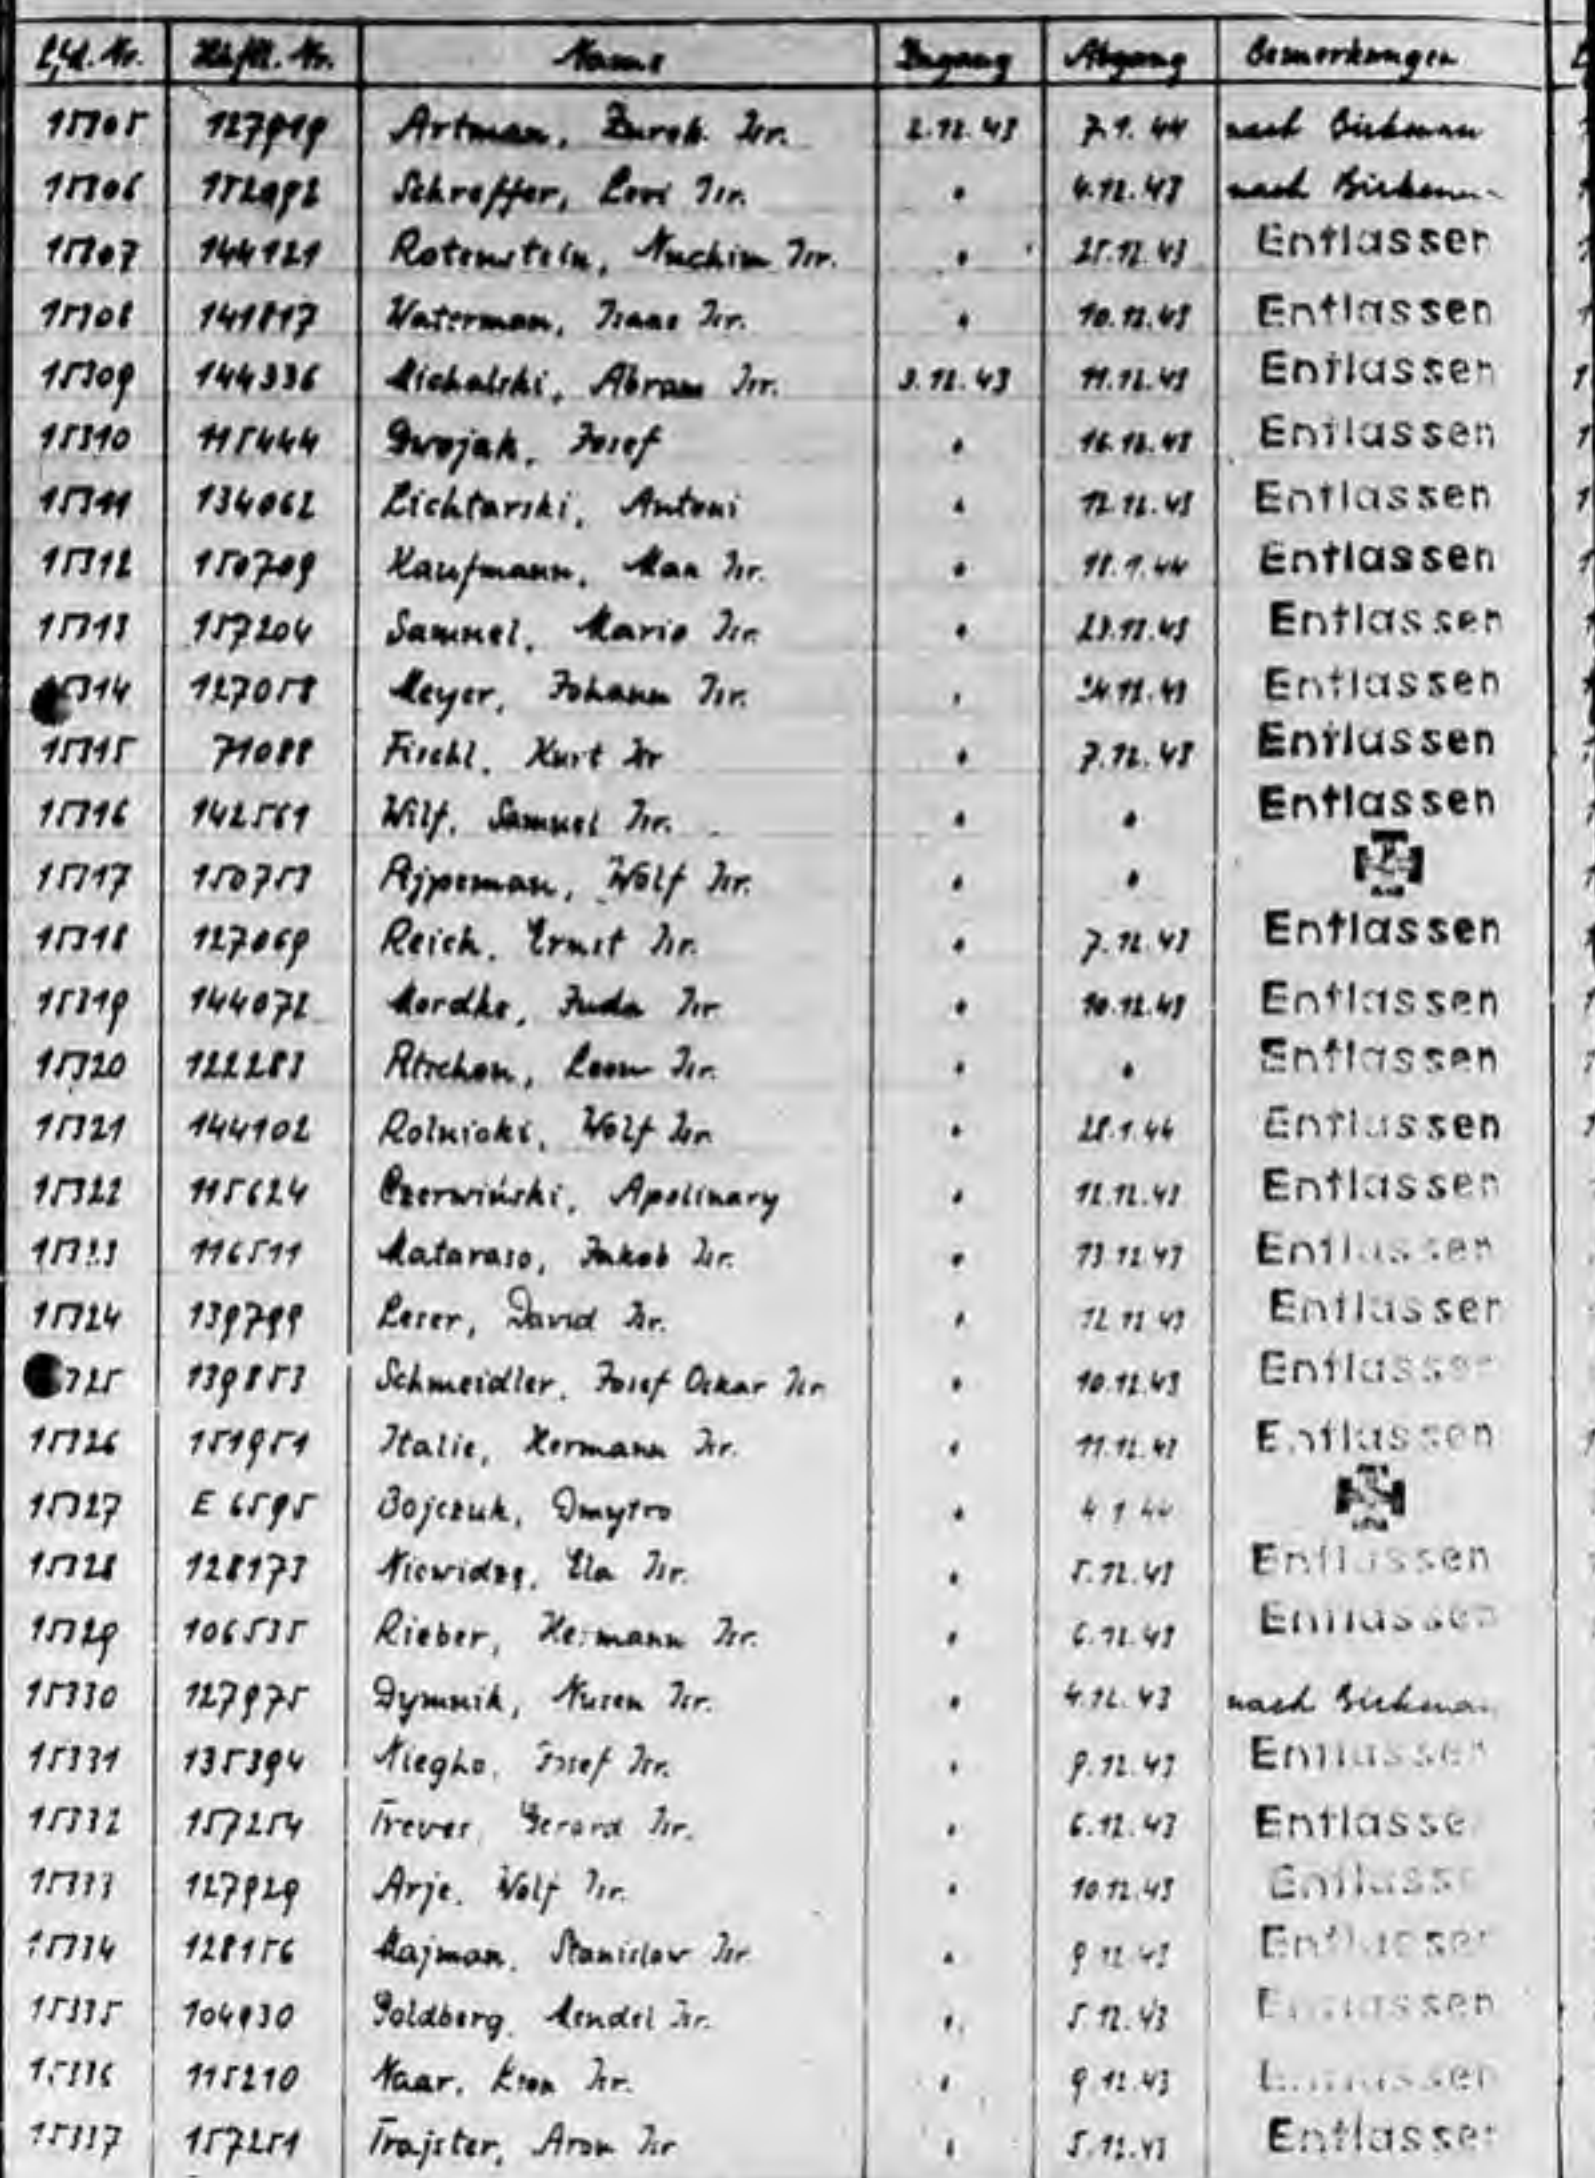 Lfd. Nr. Häftl. Nr. Name Zugang Abgang Bemerkungen
15305 127919 Artman, Isr. 2.12.43 7.1.44 nach Birkenau
15306 152992 Schreffer, Levi Isr. " 4.12.43 nach Birkenau
15307 144121 Rotenstein, Nuchim Isr. " 25.12.43 Entlassen
15308 141817 Waterman, Isaac Isr. " 10.12.43 Entlassen
15309 144336 Michalski, Abram Isr. 3.12.43 11.12.43 Entlassen
15310 115444 Dwojak, Josef " 16.12.43 Entlassen
15311 134062 Lichtarski, Antoni " 12.12.43 Entlassen
15312 150709 Kaufmann, Max Isr. " 18.1.44 Entlassen
15313 157204 Samuel, Mario Isr. " 23.12.43 Entlassen
15314 127058 Meyer, Johann Isr. " 24.12.43 Entlassen
15315 71088 Fischl, Kurt Isr " 7.12.43 Entlassen
15316 142561 Wilf, Samuel Isr. " " Entlassen
15317 150753 Ajpeman, Wolf Isr. " "
15318 127069 Reich, Ernst Isr. " 7.12.43 Entlassen
15319 144072 Mordke, Juda Isr " 10.12.43 Entlassen
15320 122283 Leon Isr. " " Entlassen
15321 144102 Rolnicki, Wolf Isr. " 28.1.44 Entlassen
15322 115624 Czerwiński, Apolinary " 12.12.43 Entlassen
15323 116511 Mataraso, Jakob Isr. " 13.12.43 Entlassen
15324 139799 Leser, David Isr. " 12.12.43 Entlassen
15325 139853 Schmeidler, Josef Oskar Isr. " 10.12.43 Entlassen
15326 151951 Italie, Hermann Isr. " 11.12.43 Entlassen
15327 E 6595 Bojczuk, Dmytro " 4.1.44
15328 128173 Niewidzę, Ela Isr. " 5.12.43 Entlassen
15329 106535 Rieber, Hermann Isr. " 6.12.43 Entlassen
15330 127975 Dymnik, Nusen Isr. " 4.12.43 nach Birkenau
15331 135394 Niegho, Josef Isr. " 9.12.43 Entlassen
15332 157254 Trever, Gerard Isr. " 6.12.43 Entlassen
15333 127929 Arje, Wolf Isr. " 10.12.43 Entlassen
15334 128156 Majman, Stanislaw Isr. " 9.12.43 Entlassen
15335 104930 Goldberg, Mendel Isr. " 5.12.43 Entlassen
15336 115210 Naar, Isr. " 9.12.43 Entlassen
15337 157251 Trajster, Aron Isr " 5.12.43 Entlassen